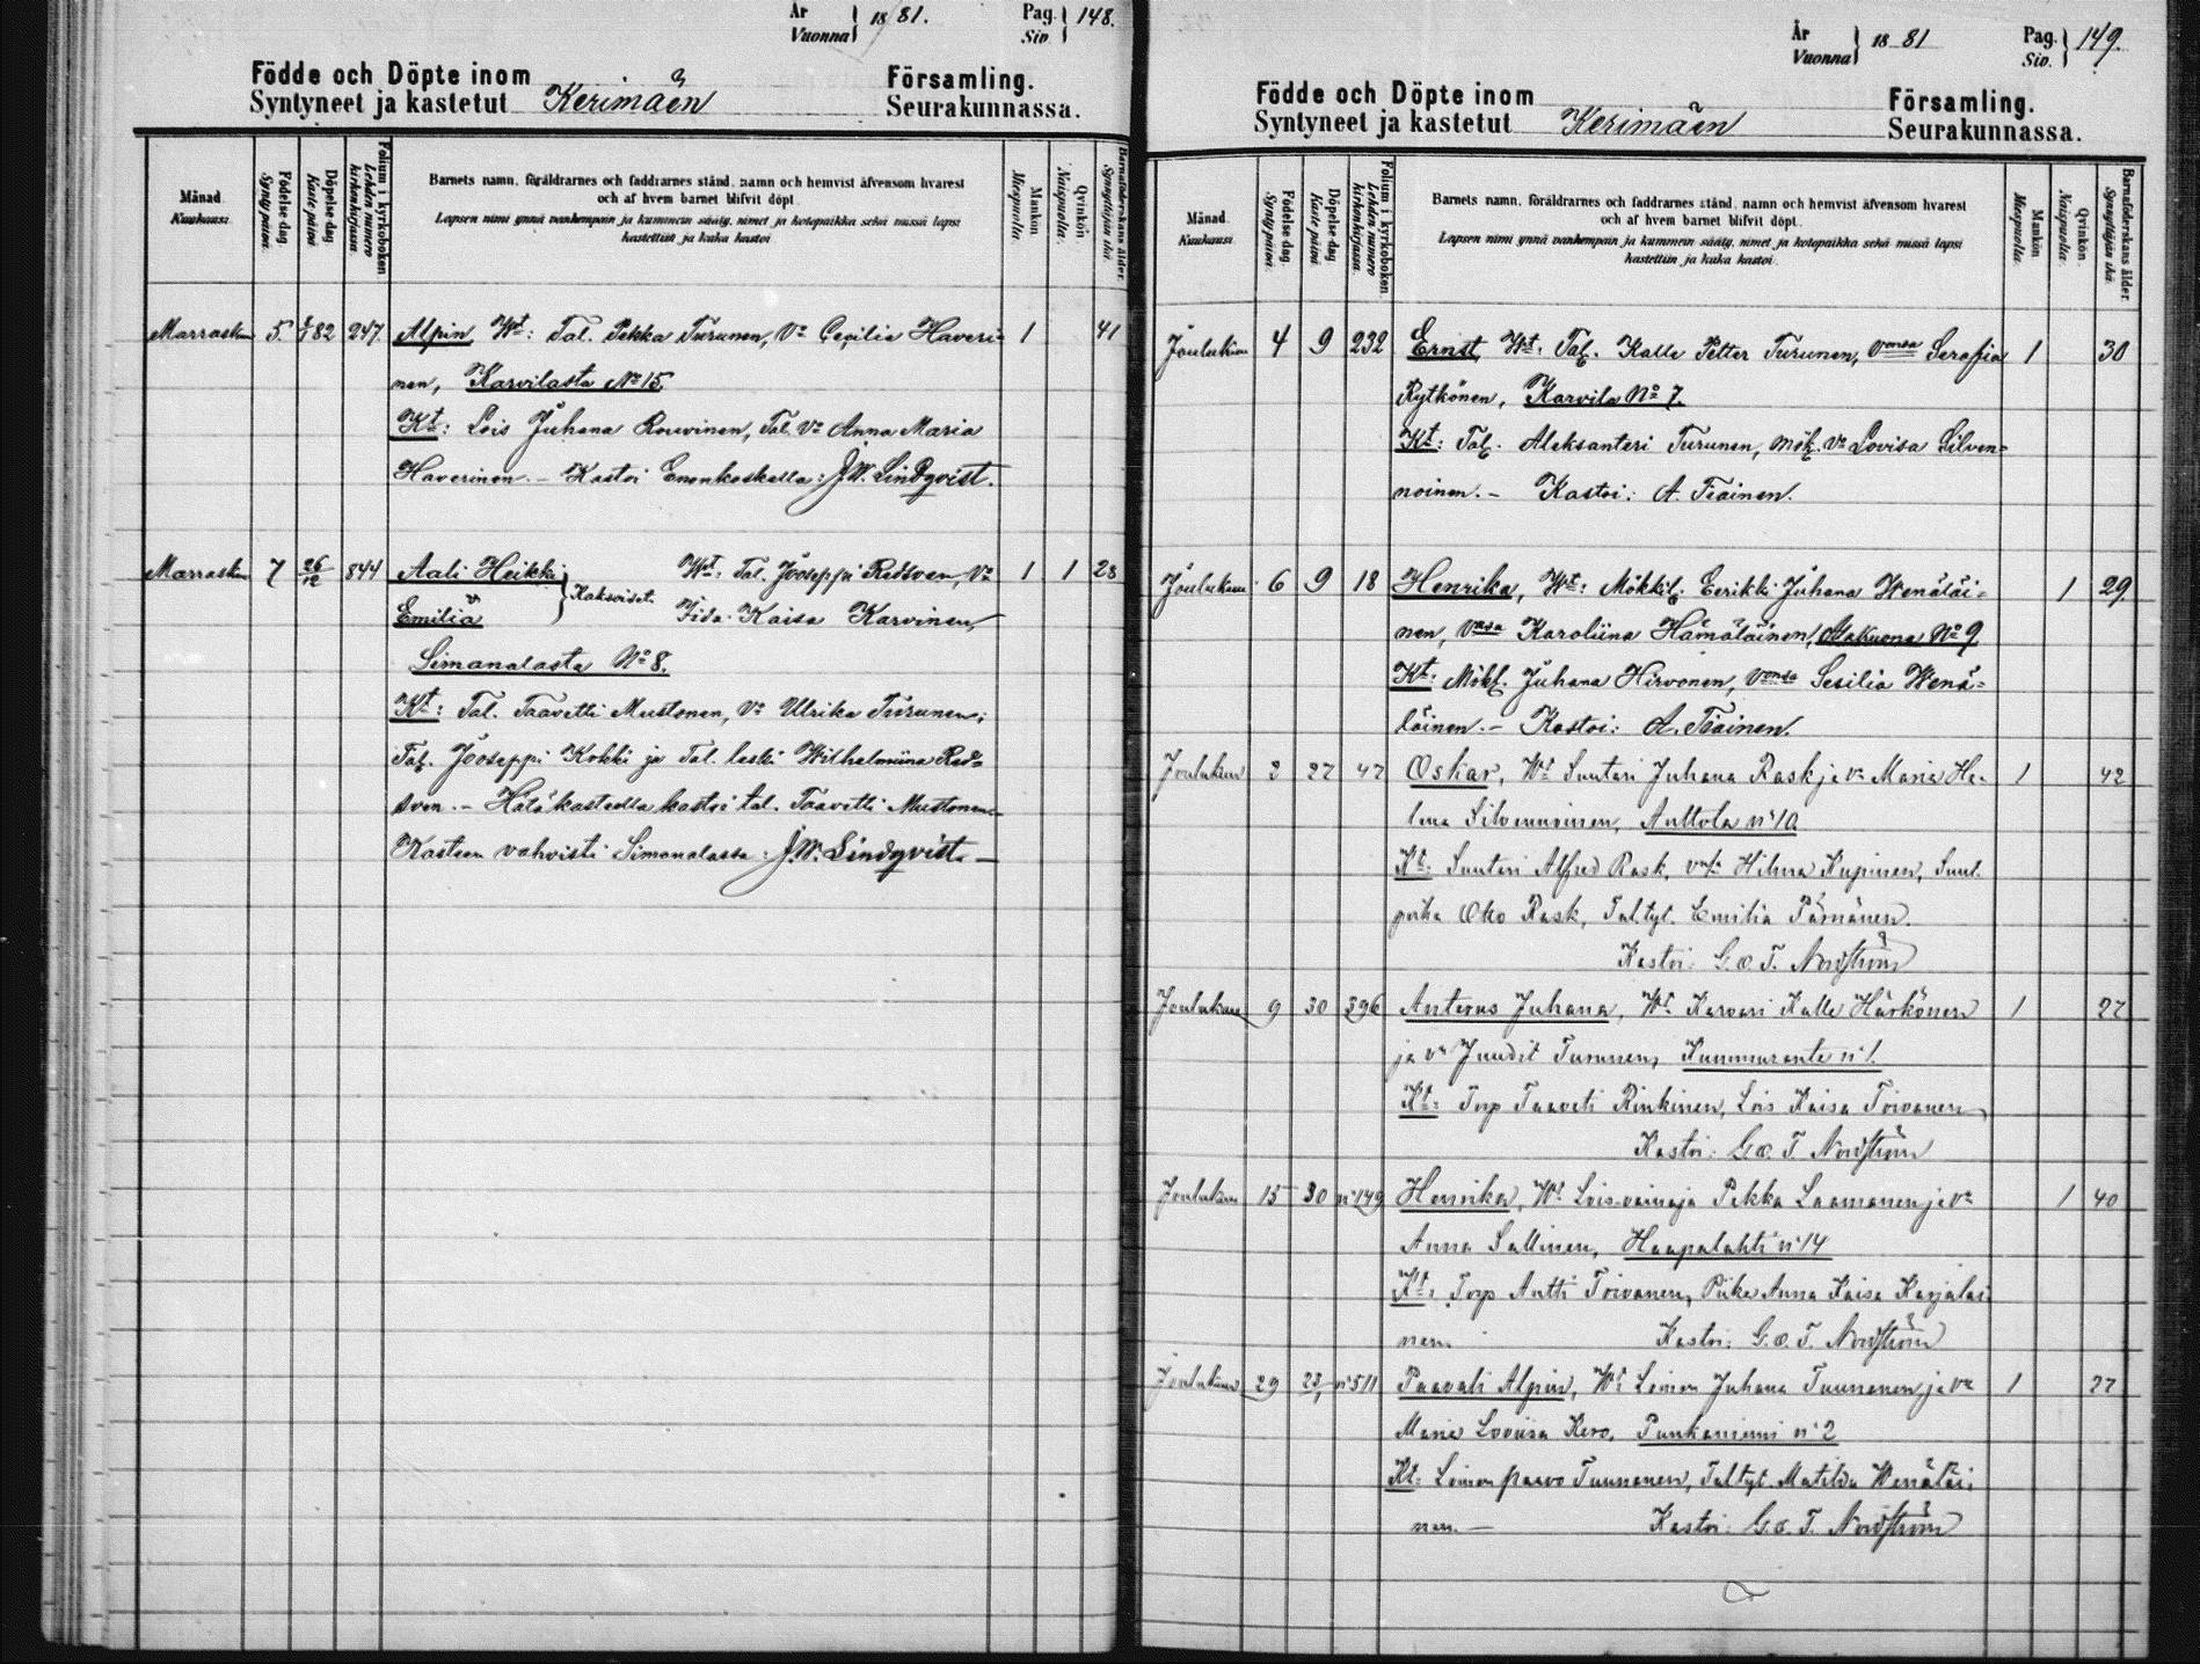 År
Vuonna } 1881.
Pag.
Siv. } 148.
Födde och Döpte inom
Syntyneet ja kastetut Kerimäen
Församling.
Seurakunnassa.
Månad.
Kuukausi.
Födelse dag.
Synty päivä.
Döpelse dag
Kaste päivä
Folium i kyrkoboken
Lehden numero
kirkonkirjassa.
Barnets namn, föräldrarnes och faddrarnes stånd, namn och hemvist äfvensom hvarest
och af hvem barnet blifvit döpt.
Lapsen nimi ynnä vanhempain ja kummein sääty, nimet ja kotopaikka sekä missä lapsi
kastettiin ja kuka kastoi
Mankön
Miespuolia.
Qvinkön.
Naispuolia.
Barnaföderskans ålder.
Synnyttäjän ikä.
Marraskuu 5. 247. Alpin, Wt: Tal. Pekka Turunen, Vo Cecilia Haveri- 1 41
nen, Karvilasta No 15.
Kt: Lois Juhana Rouvinen, Tal. Vo Anna Maria
Haverinen. – Kastoi Enonkoskella: J.W. Lindqvist.
Marraskuu 7 26/12 844 Aali Heikki } Kaksoiset. Wt: Tal. Jooseppi Redsven, Vo 1 1 23
Emilia Kaisa Karvinen,
Simanalasta No 8.
Kt: Tal. Taavetti Mustonen, Vo Ulrika Turunen;
Tal. Jooseppi Kokki ja Tal. leski Wilhelmiina Red-
sven. – Hätäkasteella kastoi tal. Taavetti Mustonen.
Kasteen vahvisti Simanalassa: J.W. Lindqvist. –
År
Vuonna } 1881
Pag.
Siv. } 149.
Födde och Döpte inom
Syntyneet ja kastetut Kerimäen
Församling.
Seurakunnassa.
Månad.
Kuukausi
Födelse dag.
Synty päivä.
Döpelse dag
Kaste päivä.
Folium i kyrkoboken.
Lehden numero
kirkonkirjassa.
Barnets namn, föräldrarnes och faddrarnes stånd, namn och hemvist äfvensom hvarest
och af hvem barnet blifvit döpt.
Lapsen nimi ynnä vanhempain ja kummein sääty, nimet ja kotopaikka sekä missä lapsi
kastettiin ja kuka kastoi.
Mankön
Miespuolia.
Qvinkön.
Naispuolia.
Barnaföderskans ålder.
Synnyttäjän ikä.
Joulukuu 4 9 232 Ernst, Wt: Tal. Kalle Petter Turunen, Vonsa Serafia 1 30
Rytkönen, Karvila No 7.
Kt: Tal. Aleksanteri Turunen, mök. Vo Lovisa Silven-
noinen. – Kastoi: A. Tiainen.
Joulukuu 6 9 18 Henrika, Wt: Mökkil. Eerikki Juhana Wenäläi- 1 29.
nen, Vnsa Karoliina Hämäläinen, Alakuona No 9
Kt: Mökl. Juhana Hirvonen, Vonsa Sesilia Wenä-
läinen. – Kastoi: A. Tiainen.
Joulukuu 2 27 47 Oskar, Wt Suutari Juhana Rask ja vo Maria He- 1 42
lena Silvennoinen, Anttola no 10
Kt: Suutari Alfred Rask, Hilma Kupinen, Suut.
poika Otto Rask, Tal.tyt. Emilia Pärnänen.
Kastoi: G. O. T. Nordström
Joulukuu 9 30 396 Anterus Juhana, Wt Karvari Kalle Härkönen 1 27
ja vo Juudit Turunen, Kummuranta no 1.
Kt: Torp Taaveti Rinkinen, Lois Kaisa Toivanen
Kastoi: G. O. T. Nordström
Joulukuu 15 30 no 149 Henrika, Wt Lois-vainaja Pekka Laamanen ja vo 1 40
Anna Sallinen, Haapalahti no 14
Kt: Torp Antti Toivanen, Piika Anna Kaisa Karjalai-
nen. Kastoi: G. O. T. Nordström
Joulukuu 29 23/1 no 511 Paavali Alpin, Wt Loinen Juhana Tuunanen ja vo 1 27
Maria Loviisa Kero, Punkaniemi no 2
Kt: Loinen Paavo Tuunanen, Taltyt. Matilda Wenäläi-
nen. – Kastoi: G. O. T. Nordström